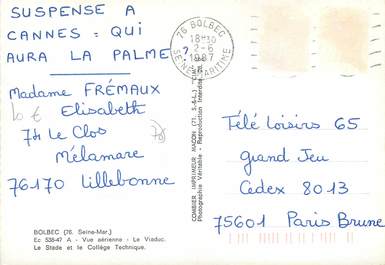 SUSPENSE A
CANNES : QUI
AURA LA PALME ?
Madame FRÉMAUX
Elisabeth
74 Le Clos
Mélamare
76170 Lillebonne
10 €
78
BOLBEC (76. Seine-Mar.)
Ec 538-47 A - Vue aérienne : Le Viaduc.
Le Stade et le Collège Technique.
76 BOLBEC
18H30
2-6
1987
SEINE MARITIME
COMBIER IMPRIMEUR MACON (71. S-&-L.)
Photographie Véritable - Reproduction Interdite
Télé Loisirs 65
Grand Jeu
Cedex 8013
75601 Paris Brune